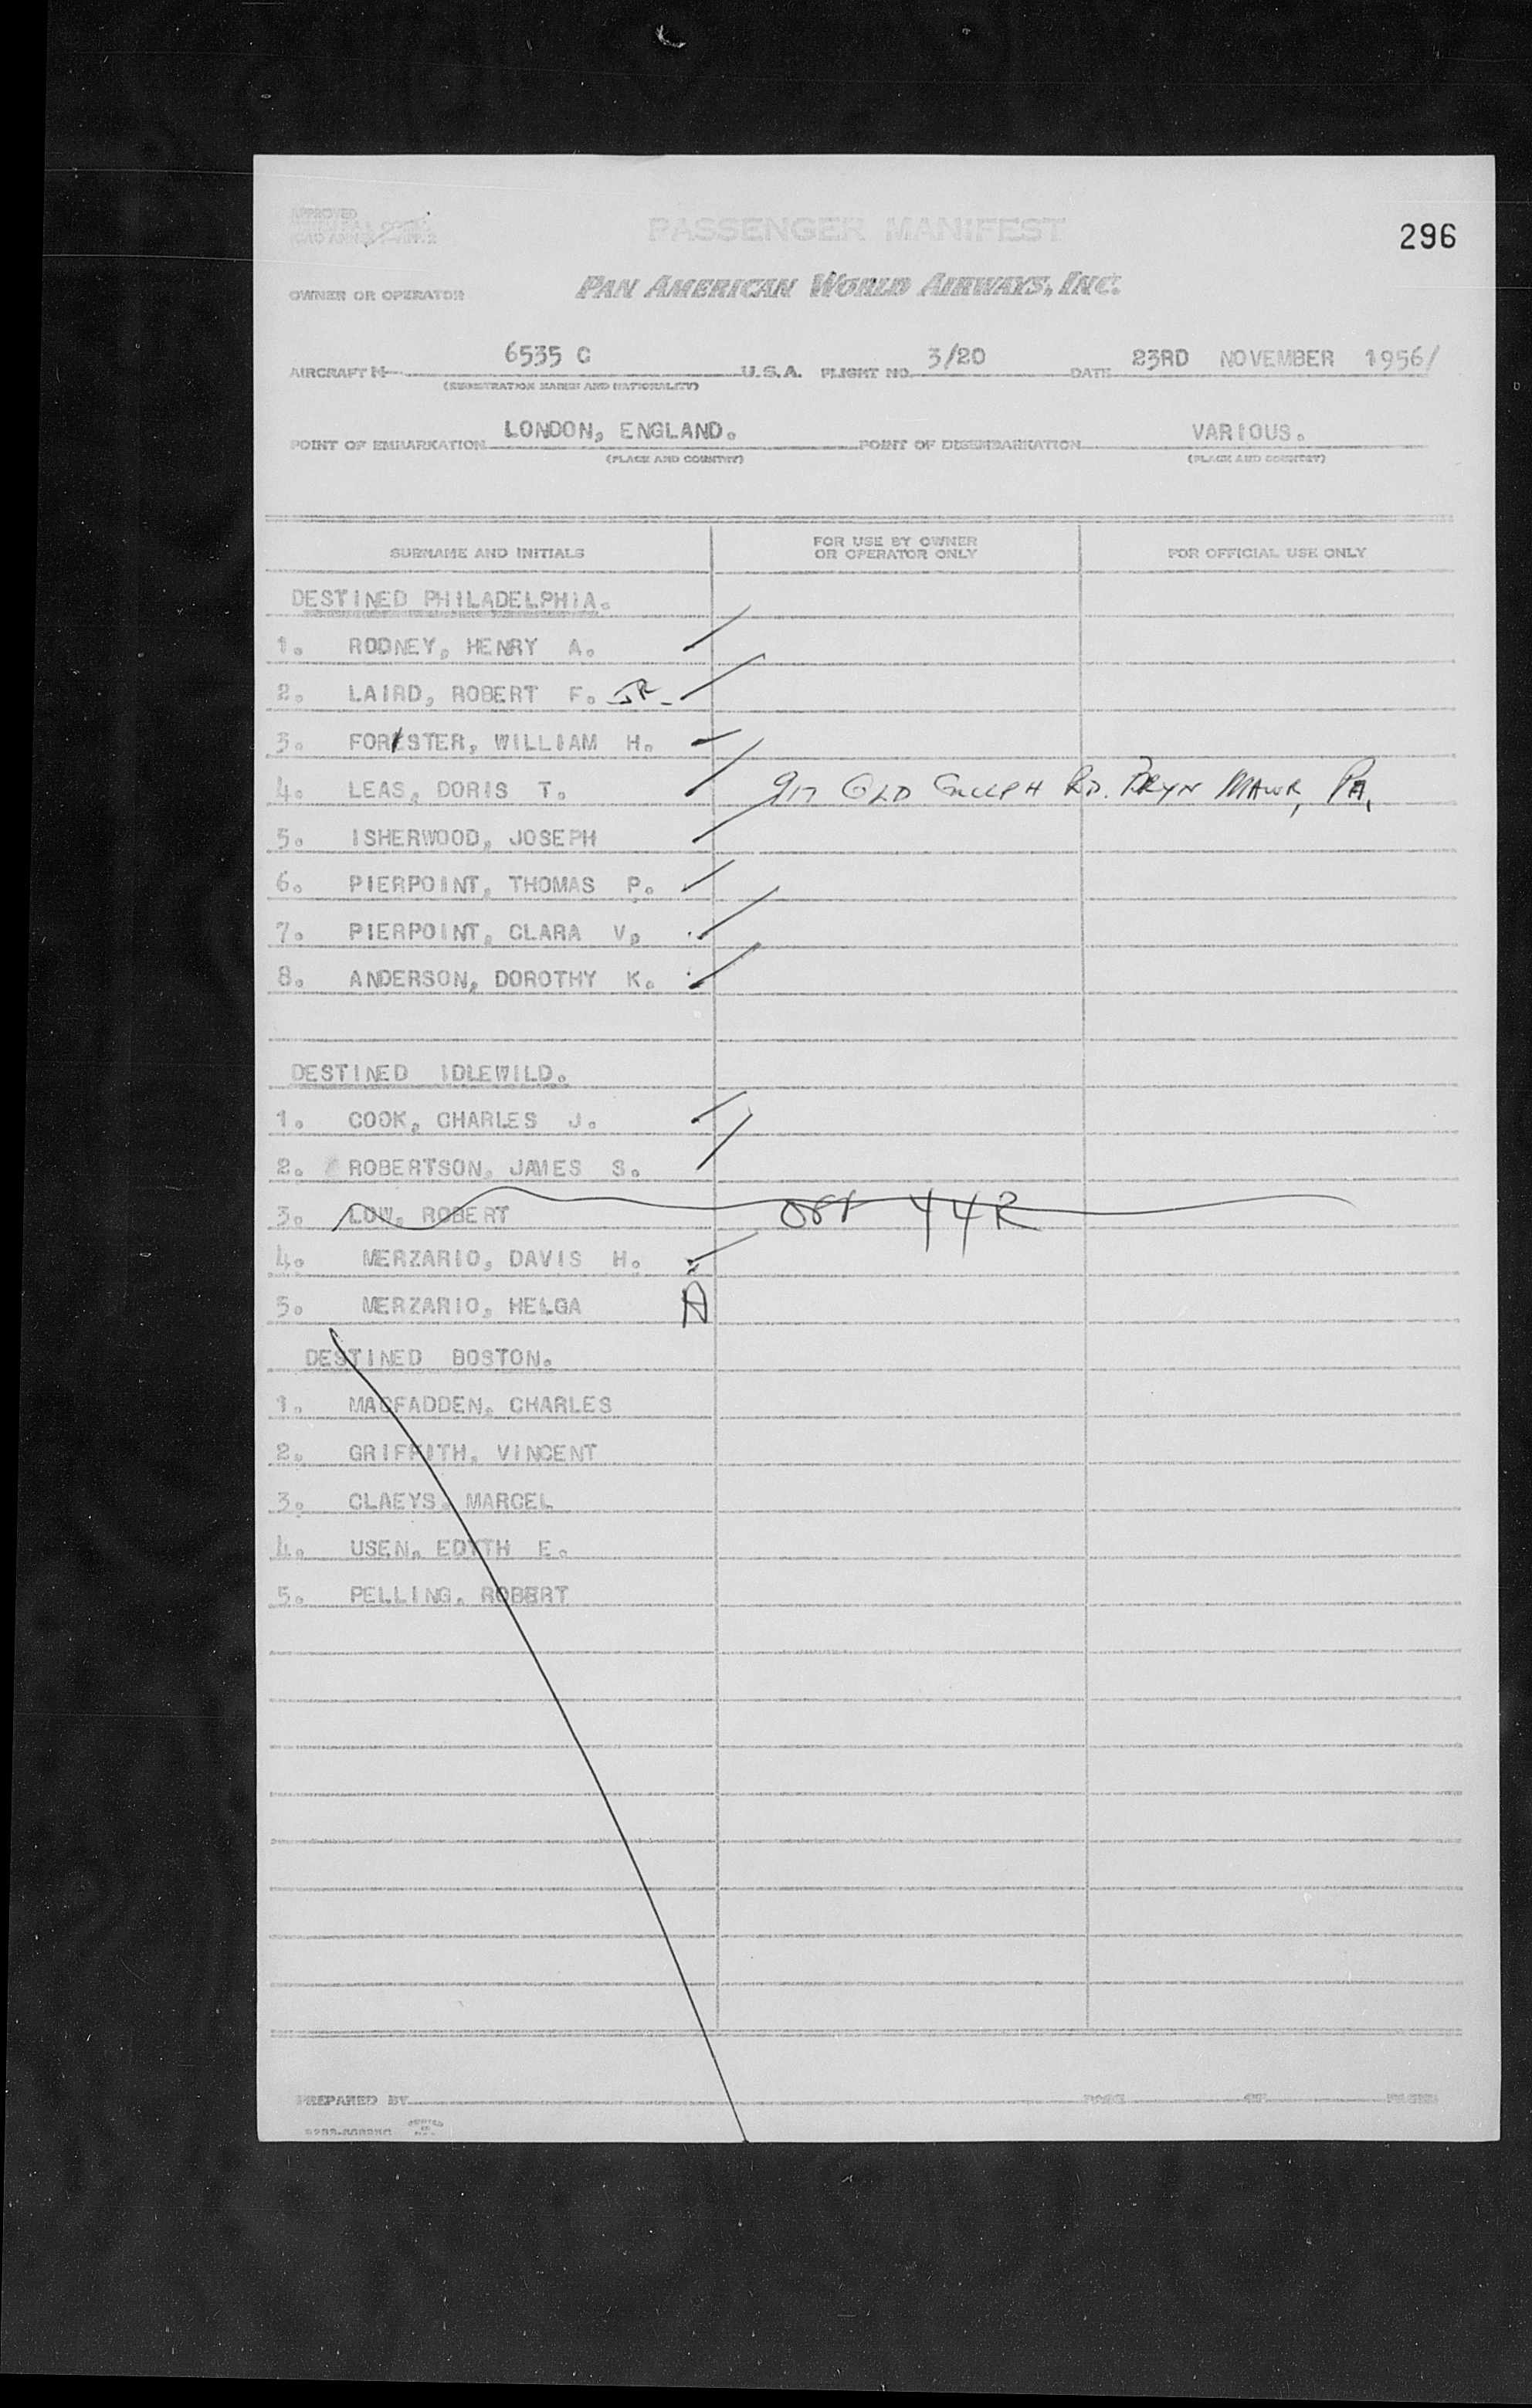 APPROVED
ICAO ANNEX 9-APP. 2
PASSENGER MANIFEST
296
OWNER OR OPERATOR PAN AMERICAN WORLD AIRWAYS, INC.
AIRCRAFT N 6535 C U.S.A. FLIGHT NO. 3/20 DATE 23RD NOVEMBER 1956/
(REGISTRATION MARKS AND NATIONALITY)
POINT OF EMBARKATION LONDON, ENGLAND. POINT OF DISEMBARKATION VARIOUS.
(PLACE AND COUNTRY) (PLACE AND COUNTRY)
SURNAME AND INITIALS FOR USE BY OWNER OR OPERATOR ONLY FOR OFFICIAL USE ONLY
DESTINED PHILADELPHIA.
1. RODNEY, HENRY A.
2. LAIRD, ROBERT F. JR.
3. FORSTER, WILLIAM H.
4. LEAS, DORIS T. 917 OLD GULPH RD. BRYN MAWR, PA.
5. ISHERWOOD, JOSEPH
6. PIERPOINT, THOMAS P.
7. PIERPOINT, CLARA V.
8. ANDERSON, DOROTHY K.
DESTINED IDLEWILD.
1. COOK, CHARLES J.
2. ROBERTSON, JAMES S.
3. LOW, ROBERT 44R
4. MERZARIO, DAVIS H.
5. MERZARIO, HELGA A
DESTINED BOSTON.
1. MACFADDEN, CHARLES
2. GRIFFITH, VINCENT
3. CLAEYS, MARCEL
4. USEN, EDYTH E.
5. PELLING, ROBERT
PREPARED BY PAGE OF PAGES